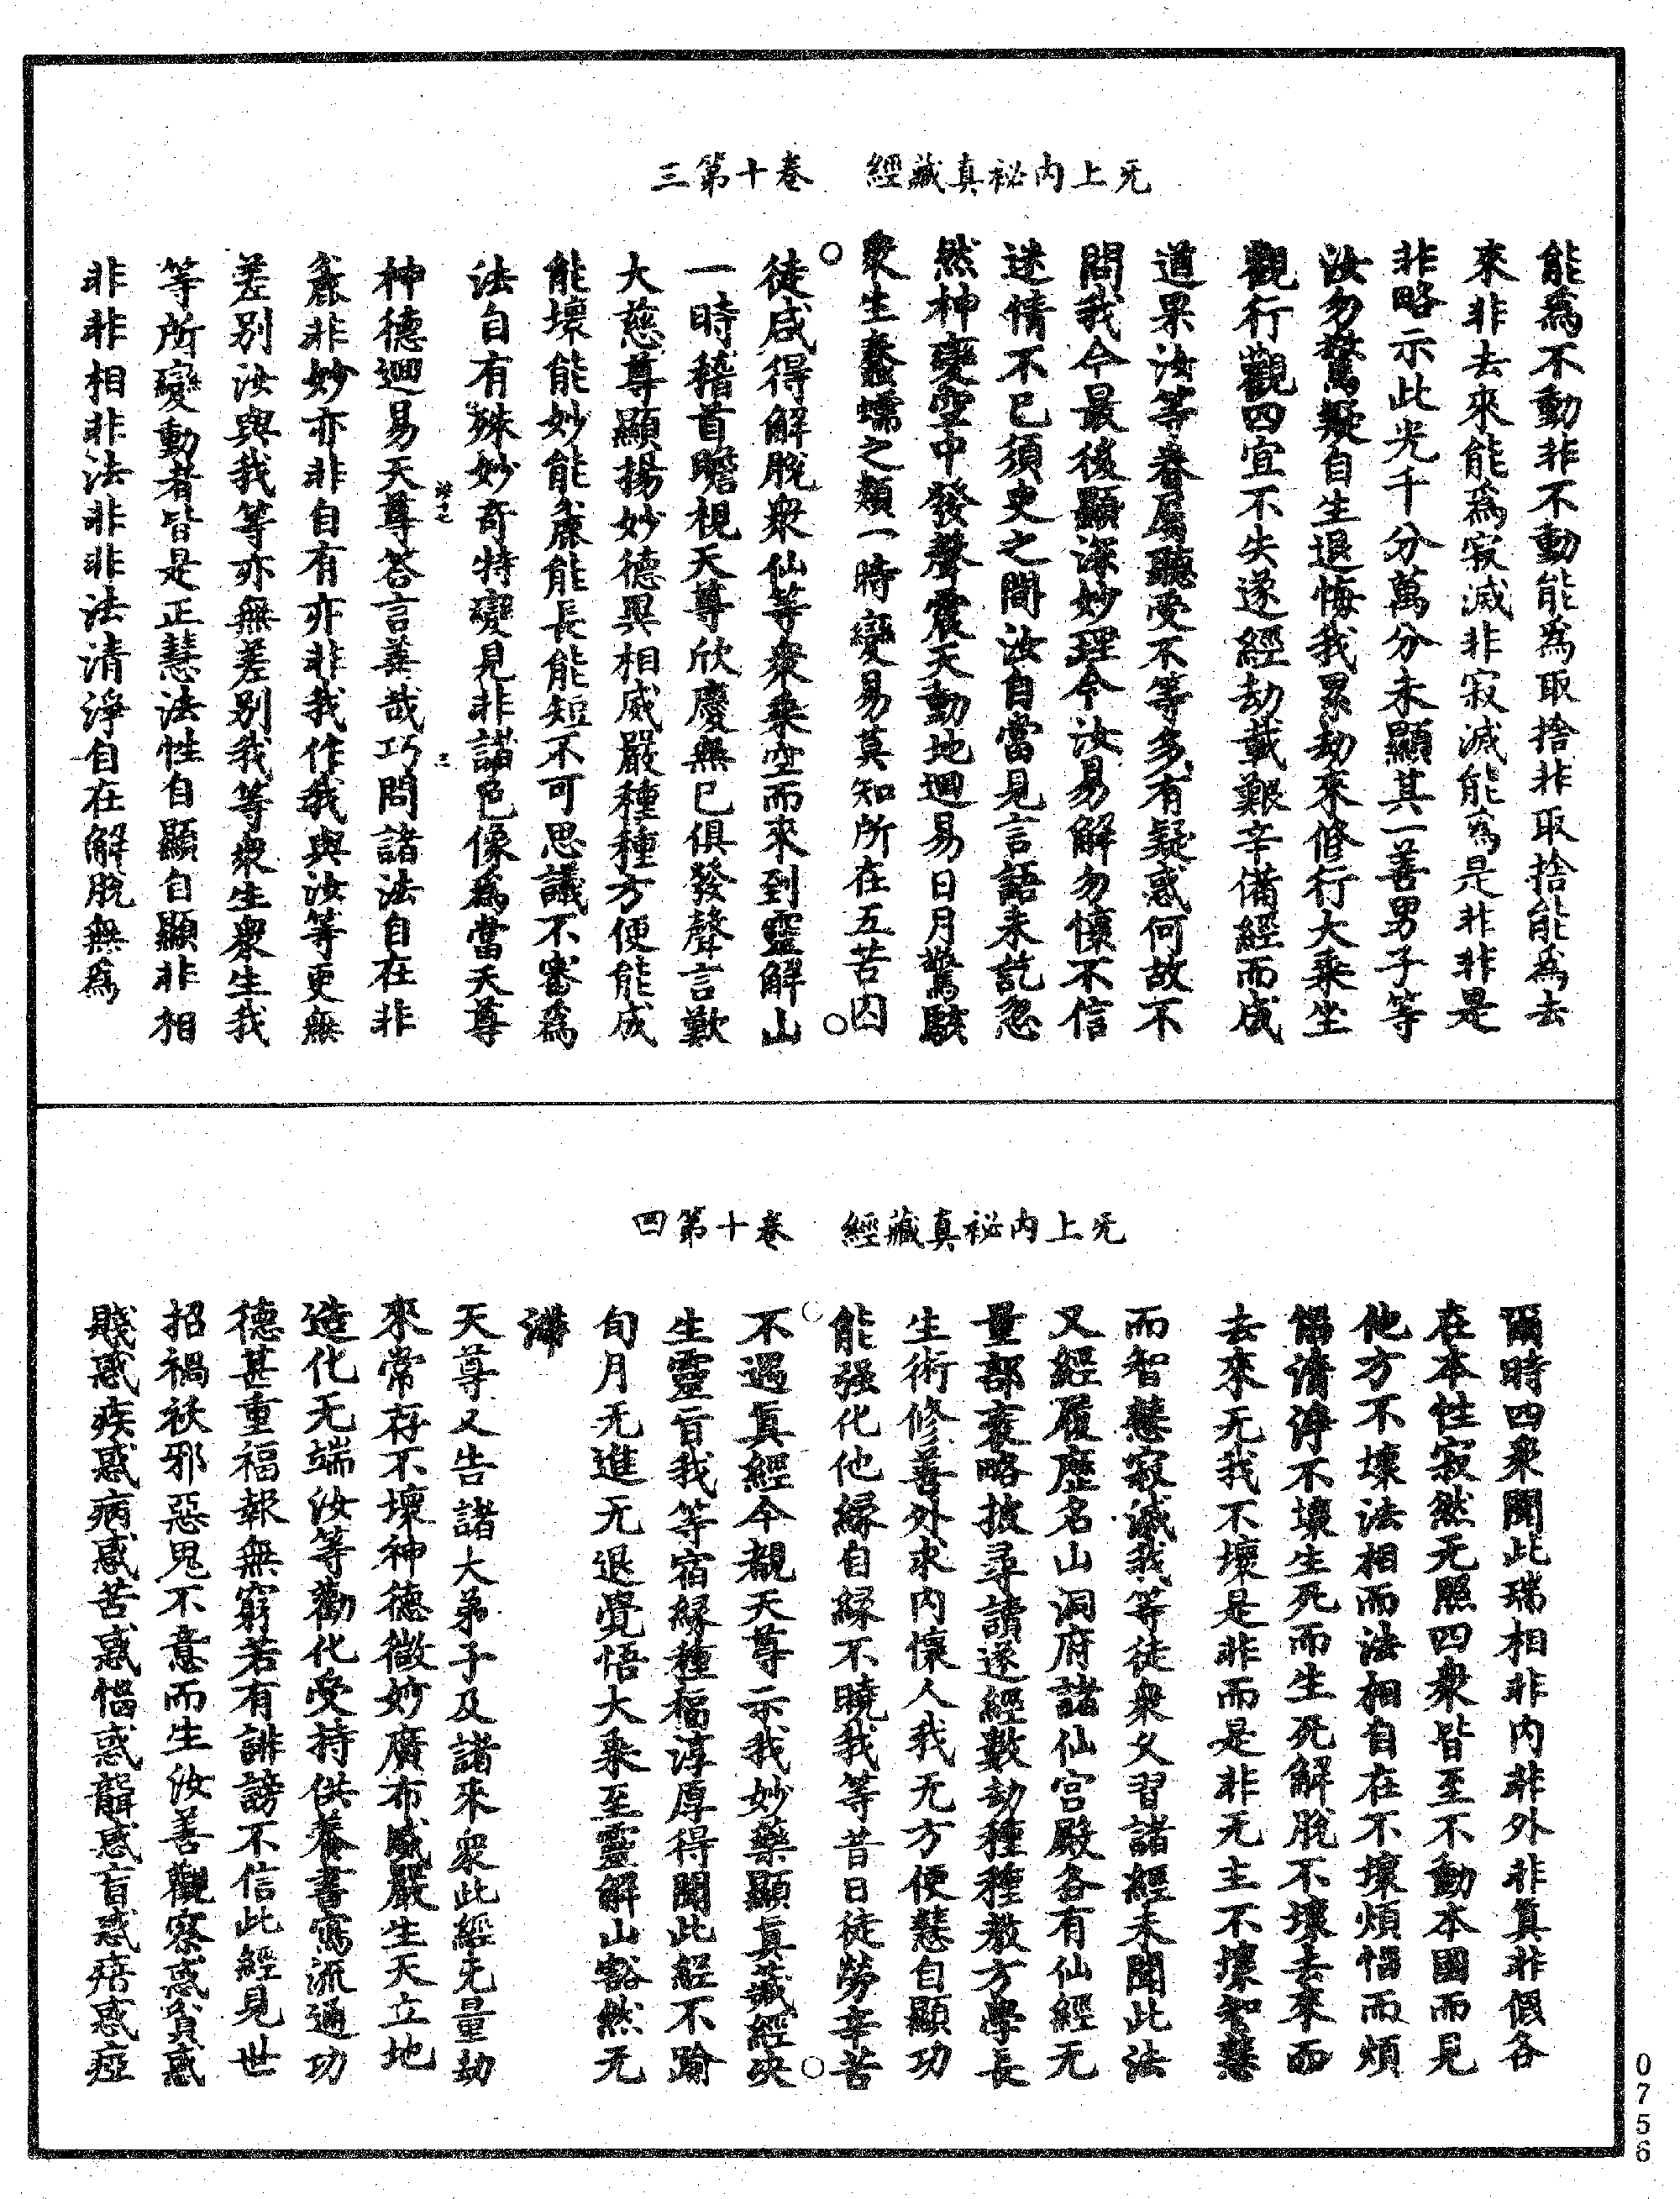 无上內祕真藏經　卷十第三
能爲不動非不動能爲取捨非取捨能爲去
來非去來能爲寂滅非寂滅能爲是非非是
非略示此光千分萬分未顯其一善男子等
汝勿驚疑自生退悔我累劫來修行大乘坐
觀行觀四宜不失遂經劫載艱辛備經而成
道果汝等眷屬聽受不等多有疑惑何故不
問我今最後顯深妙理令汝易解勿懷不信
迷情不已須臾之間汝自當見言語未訖忽
然神變空中發聲震天動地迴易日月驚駭
衆生蠢蠕之類一時變易莫知所在五苦囚
徒咸得解脫衆仙等衆乘空而來到靈解山
一時稽首瞻視天尊欣慶無已俱發聲言歎
大慈尊顯揚妙德異相威嚴種種方便能成
能壞能妙能麁能長能短不可思議不審爲
法自有殊妙奇特變見非諸色像爲當天尊
神德迴易天尊答言善哉巧問諸法自在非
麁非妙亦非自有亦非我作我與汝等更無
差別汝與我等亦無差別我等衆生衆生我
等所變動者皆是正慧法性自顯自顯非相
非非相非法非非法清淨自在解脫無爲
无上內祕真藏經　卷十第四
爾時四衆聞此瑞相非内非外非真非假各
在本性寂然无照四衆皆至不動本國而見
他方不壞法相而法相自在不壞煩惱而煩
惱清淨不壞生死而生死解脫不壞去來而
去來无我不壞是非而是非无主不壞智慧
而智慧寂滅我等徒衆久習諸經未聞此法
又經履歷名山洞府諸仙宮殿各有仙經无
量部袠略披尋請遂經數劫種種教方學長
生術修善外求内懷人我无方便慧自顯功
能强化他緣自緣不曉我等昔日徒勞辛苦
不遇真經今覩天尊示我妙藥顯真藏經決
生靈旨我等宿緣種福淳厚得聞此經不踰
旬月无進无退覺悟大乘至靈解山豁然无
滯
天尊又告諸大弟子及諸來衆此經无量劫
來常存不壞神德微妙廣布威嚴生天立地
造化无端汝等勸化受持供養書寫流通功
德甚重福報無窮若有誹謗不信此經見世
招禍袄邪惡鬼不意而生汝善觀察惑貧惑
賤惑疾惑病惑苦惑惱惑聾惑盲惑瘖惑瘂
0756